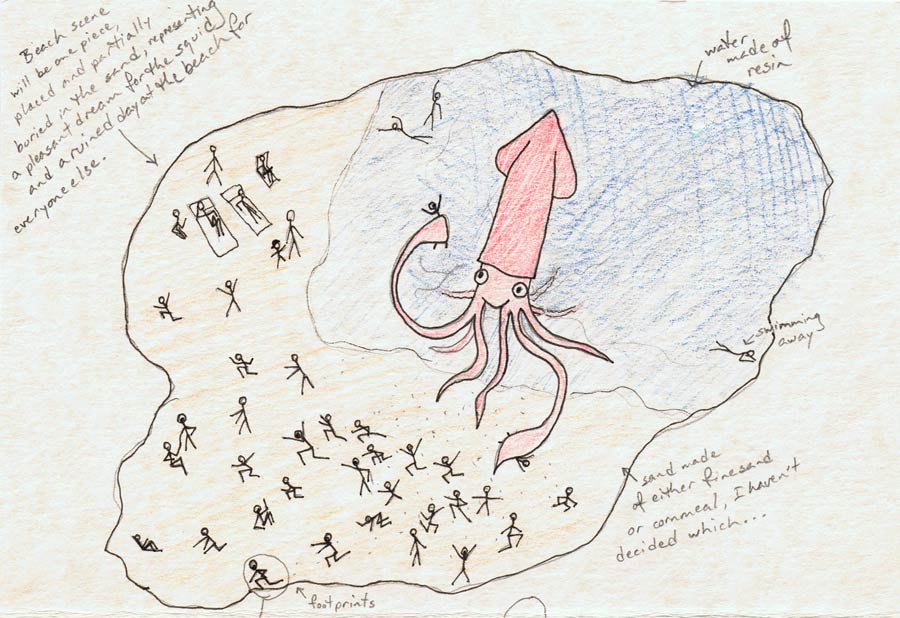 Beach scene
will be one piece,
placed and partially
buried in the sand, representing
a pleasant dream for the squid
and a ruined day at the beach for
everyone else.
water
made of
resin
swimming
away
sand made
of either fine sand
or cornmeal, I haven't
decided which...
footprints